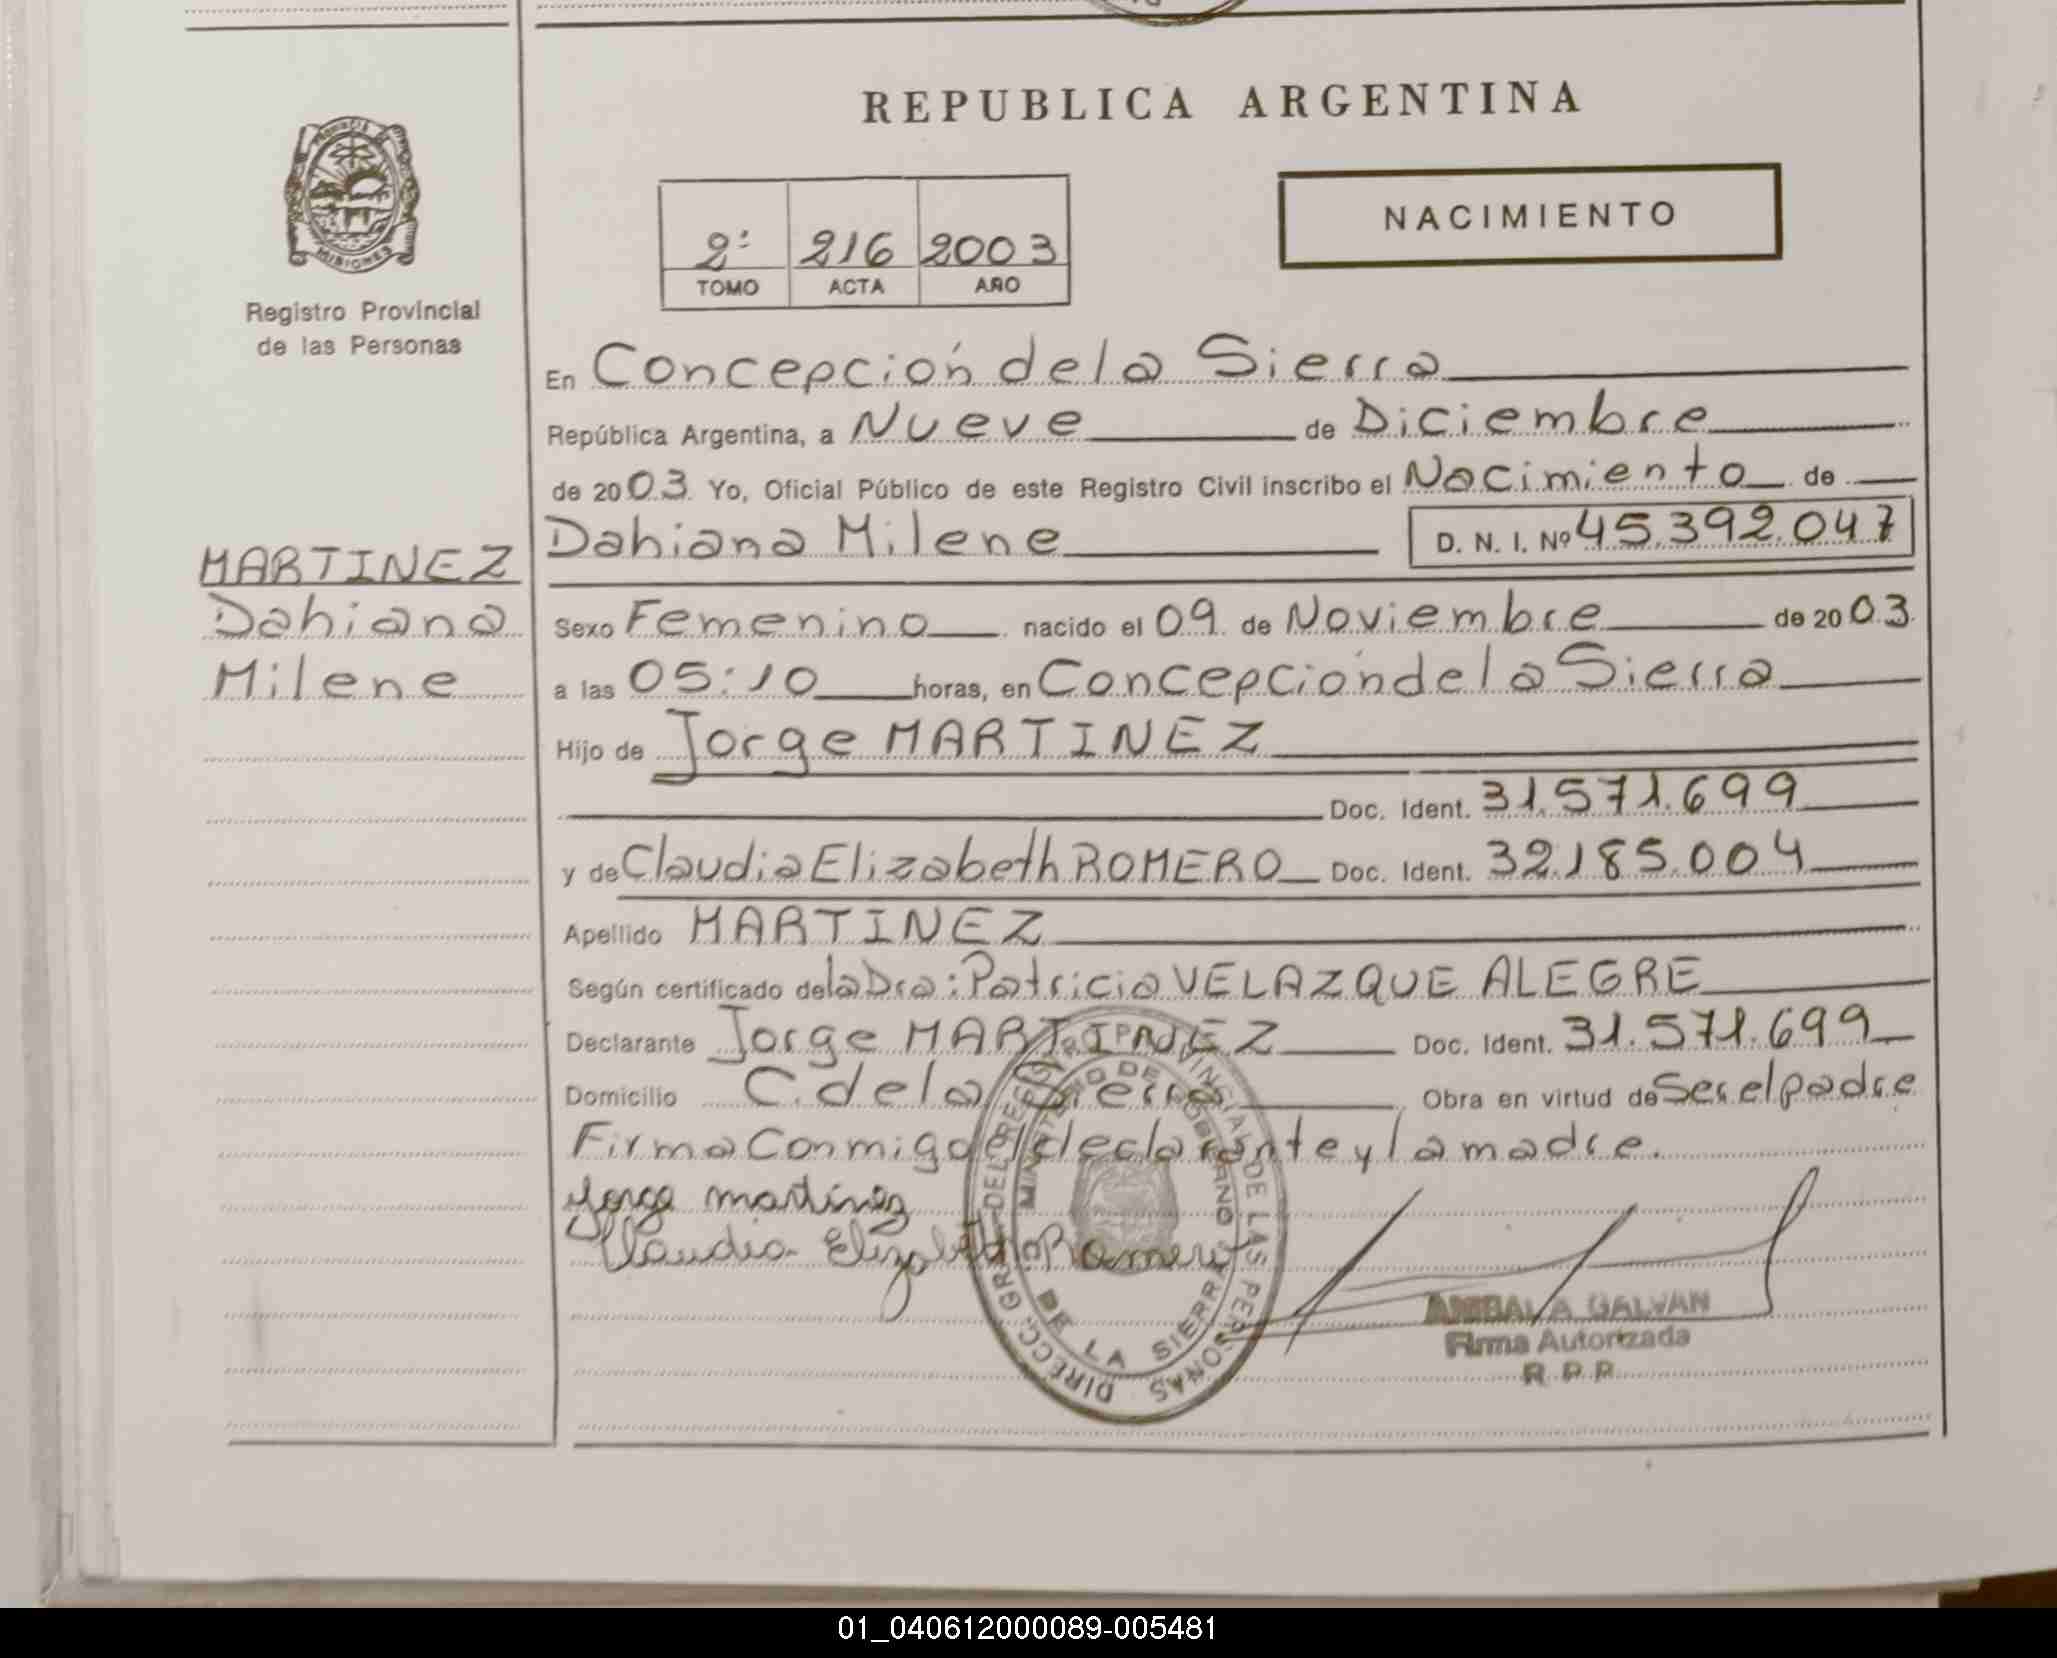 REPUBLICA ARGENTINA
PROVINCIA DE
MISIONES
Registro Provincial
de las Personas
2º 216 2003
TOMO ACTA AÑO
NACIMIENTO
En Concepción de la Sierra
República Argentina, a Nueve de Diciembre
de 2003. Yo, Oficial Público de este Registro Civil inscribo el Nacimiento de
Dahiana Milene D. N. I. Nº 45.392.047
MARTINEZ
Dahiana
Milene
Sexo Femenino nacido el 09 de Noviembre de 2003.
a las 05:10 horas, en Concepción de la Sierra
Hijo de Jorge MARTINEZ
Doc. Ident. 31.571.699
y de Claudia Elizabeth ROMERO Doc. Ident. 32.185.004
Apellido MARTINEZ
Según certificado de la Dra: Patricia VELAZQUE ALEGRE
Declarante Jorge MARTINEZ Doc. Ident. 31.571.699
Domicilio C. de la Sierra Obra en virtud de Ser el padre
Firma Conmigo el declarante y la madre.
Jorge martinez
Claudia Elizabeth Romero
DIRECC. GRAL. DEL REGISTRO PROVINCIAL DE LAS PERSONAS
MINISTERIO DE GOBIERNO
DE LA SIERRA
ANIBAL A GALVAN
Firma Autorizada
R P P
01_040612000089-005481